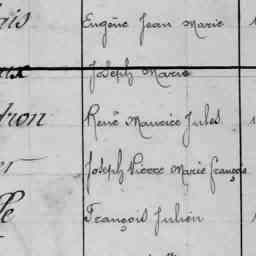 Eugène Jean Marie
Joseph Marie
René Maurice Jules
Joseph Pierre Marie François
François Julien